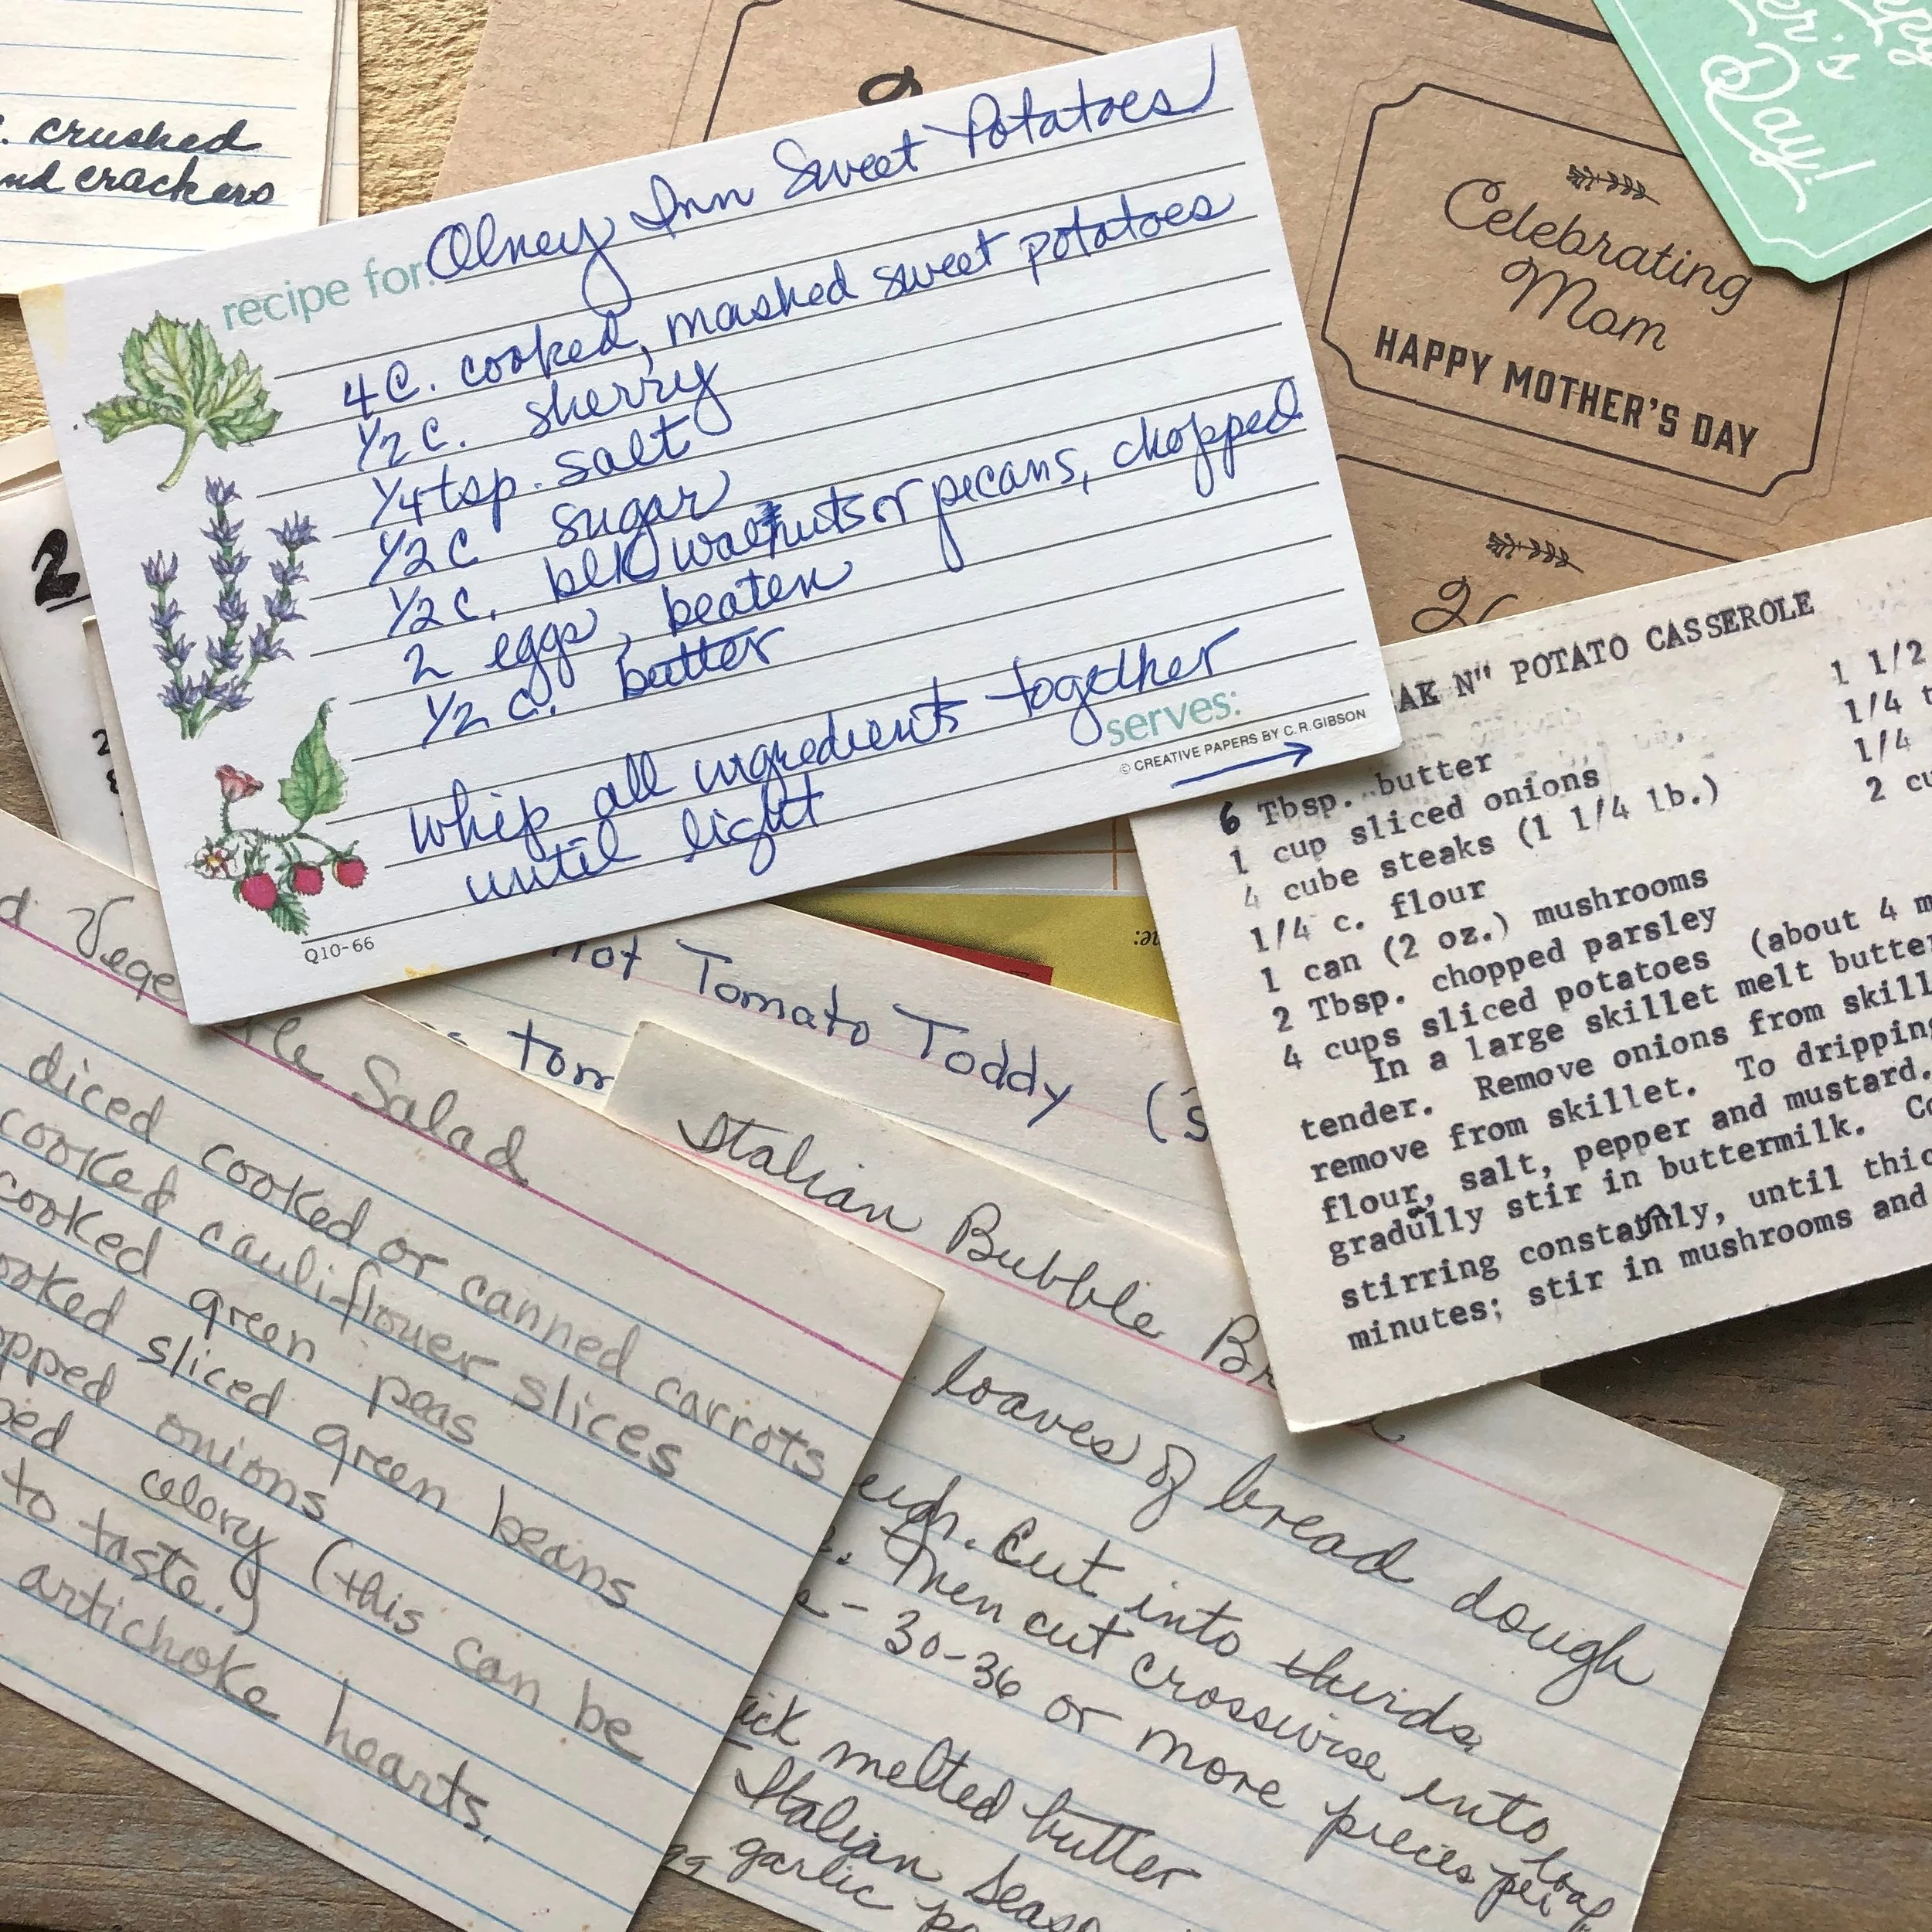 . crushed
crackers
recipe for: Olney Inn Sweet Potatoes
4 C. cooked, mashed sweet potatoes
1/2 C. sherry
1/4 tsp. salt
1/2 C sugar
1/2 C. blk walnuts or pecans, chopped
2 eggs, beaten
1/2 C. butter
whip all ingredients together
until light
serves:
© CREATIVE PAPERS BY C.R. GIBSON
Q10-66
Day!
Celebrating
Mom
HAPPY MOTHER'S DAY
2
AK N" POTATO CASSEROLE
1 1/2
1/4 t
1/4
2 cu
6 Tbsp. butter
1 cup sliced onions
4 cube steaks (1 1/4 lb.)
1/4 c. flour
1 can (2 oz.) mushrooms
2 Tbsp. chopped parsley
4 cups sliced potatoes (about 4 m
In a large skillet melt butter
tender. Remove onions from skill
remove from skillet. To dripping
flour, salt, pepper and mustard.
gradully stir in buttermilk. Co
stirring constantly, until thic
minutes; stir in mushrooms and
Hot Tomato Toddy (
tom
Salad
diced cooked or canned carrots
cooked cauliflower slices
cooked green peas
ooked sliced green beans
opped onions
ped celery (this can be
to taste.)
artichoke hearts.
Italian Bubble
loaves of bread dough
Cut into thirds.
Then cut crosswise into
- 30-36 or more pieces per loaf
melted butter
Italian Seas
garlic po